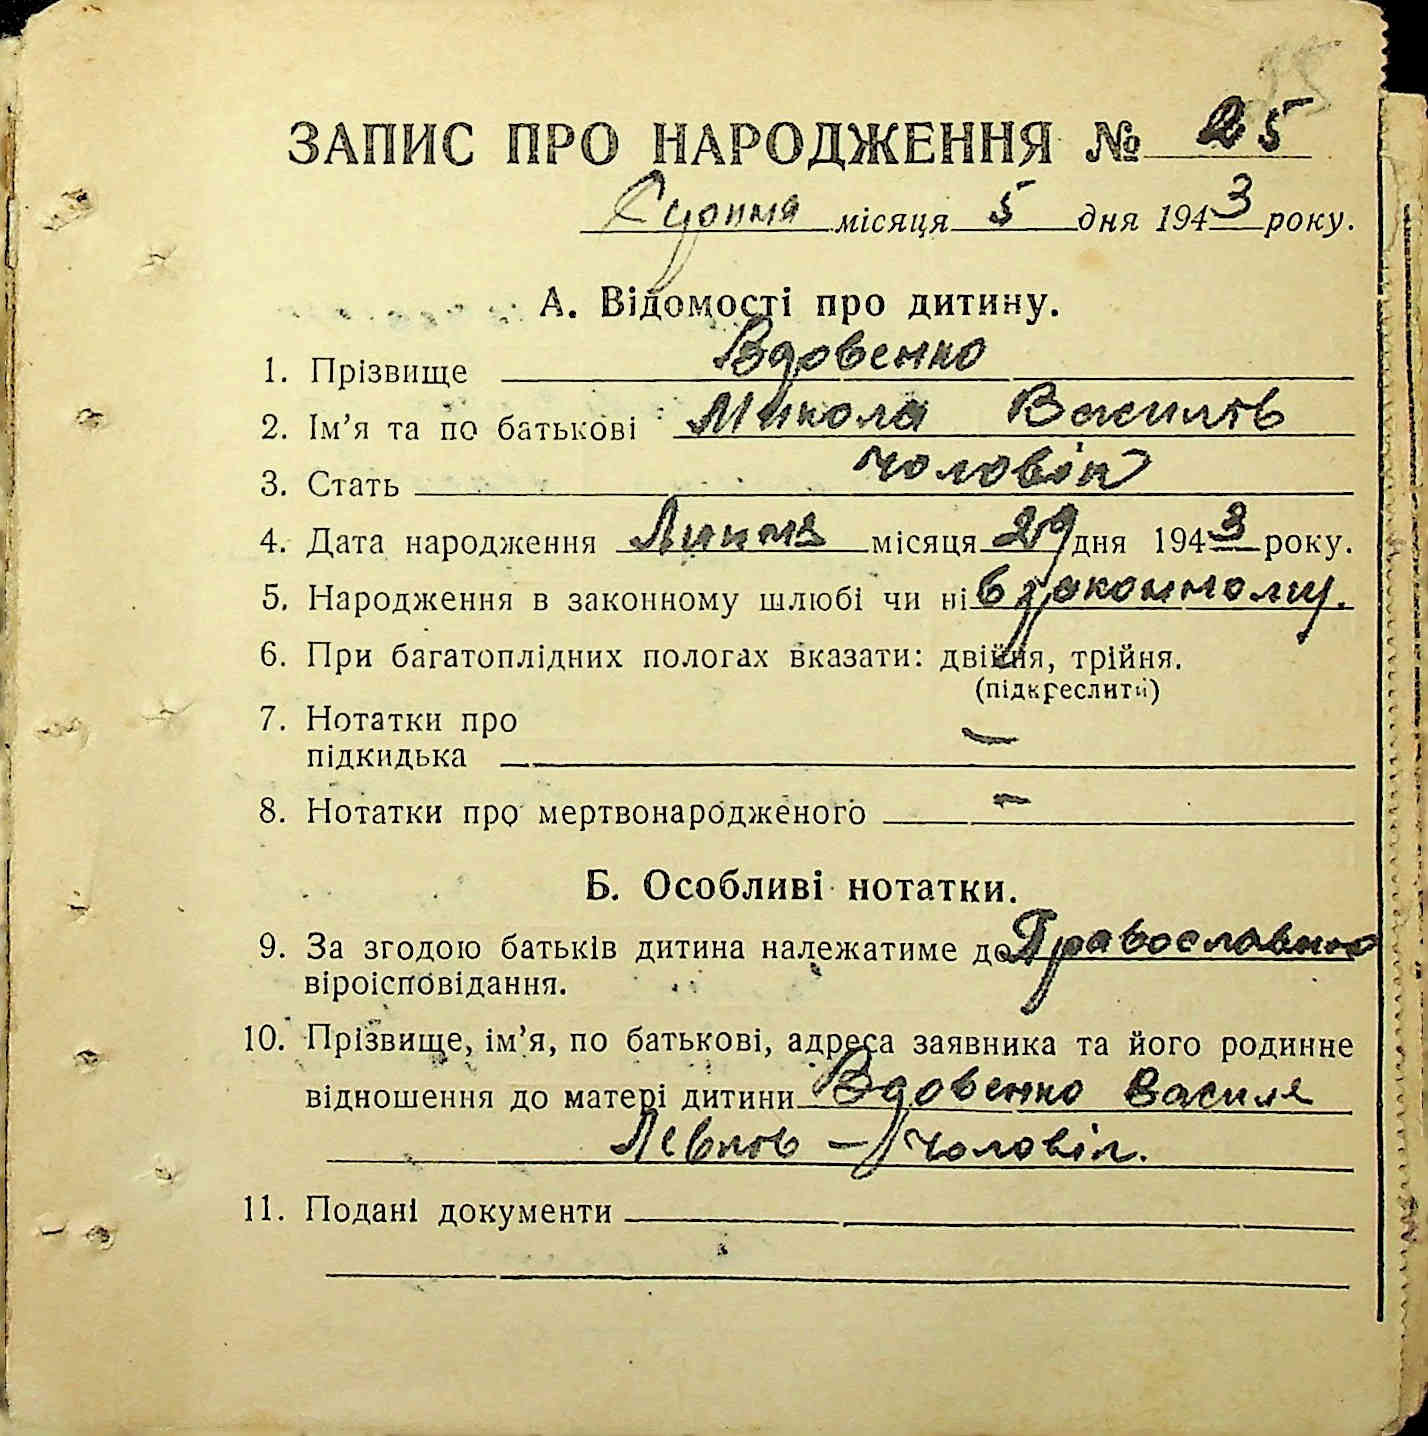 ЗАПИС ПРО НАРОДЖЕННЯ № 25
Серпня місяця 5 дня 1943 року.
А. Відомості про дитину.
1. Прізвище Вдовенко
2. Ім’я та по батькові Микола Василів
3. Стать чоловіч
4. Дата народження Липня місяця 29 дня 1943 року.
5. Народження в законному шлюбі чи ні в законному.
6. При багатоплідних пологах вказати: двійня, трійня.
(підкреслити)
7. Нотатки про
підкидька —
8. Нотатки про мертвонародженого -
Б. Особливі нотатки.
9. За згодою батьків дитина належатиме до Православно
віроісповідання.
10. Прізвище, ім’я, по батькові, адреса заявника та його родинне
відношення до матері дитини Вдовенко Василя
— чоловік.
11. Подані документи